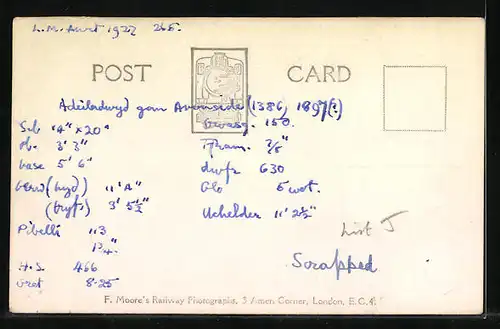 L.M. 1922 265.
POST CARD
Adeiladwyd gan Avonside (1386, 1897(?)
Sil 14" x 20" Gwasg. 150.
Ol. 3' 3" Tram. 7/8"
base 5' 6" dwfr 630
(hyd) 11' 9" Glo 5 cwt.
(tryfs) 3' 5½" Uchelder 11' 2½"
Pibelli 113
1¾"
H.S. 466
Gret 8.25
List J
Scrapped
F. Moore's Railway Photographs, 3 Amen Corner, London, E.C.4.